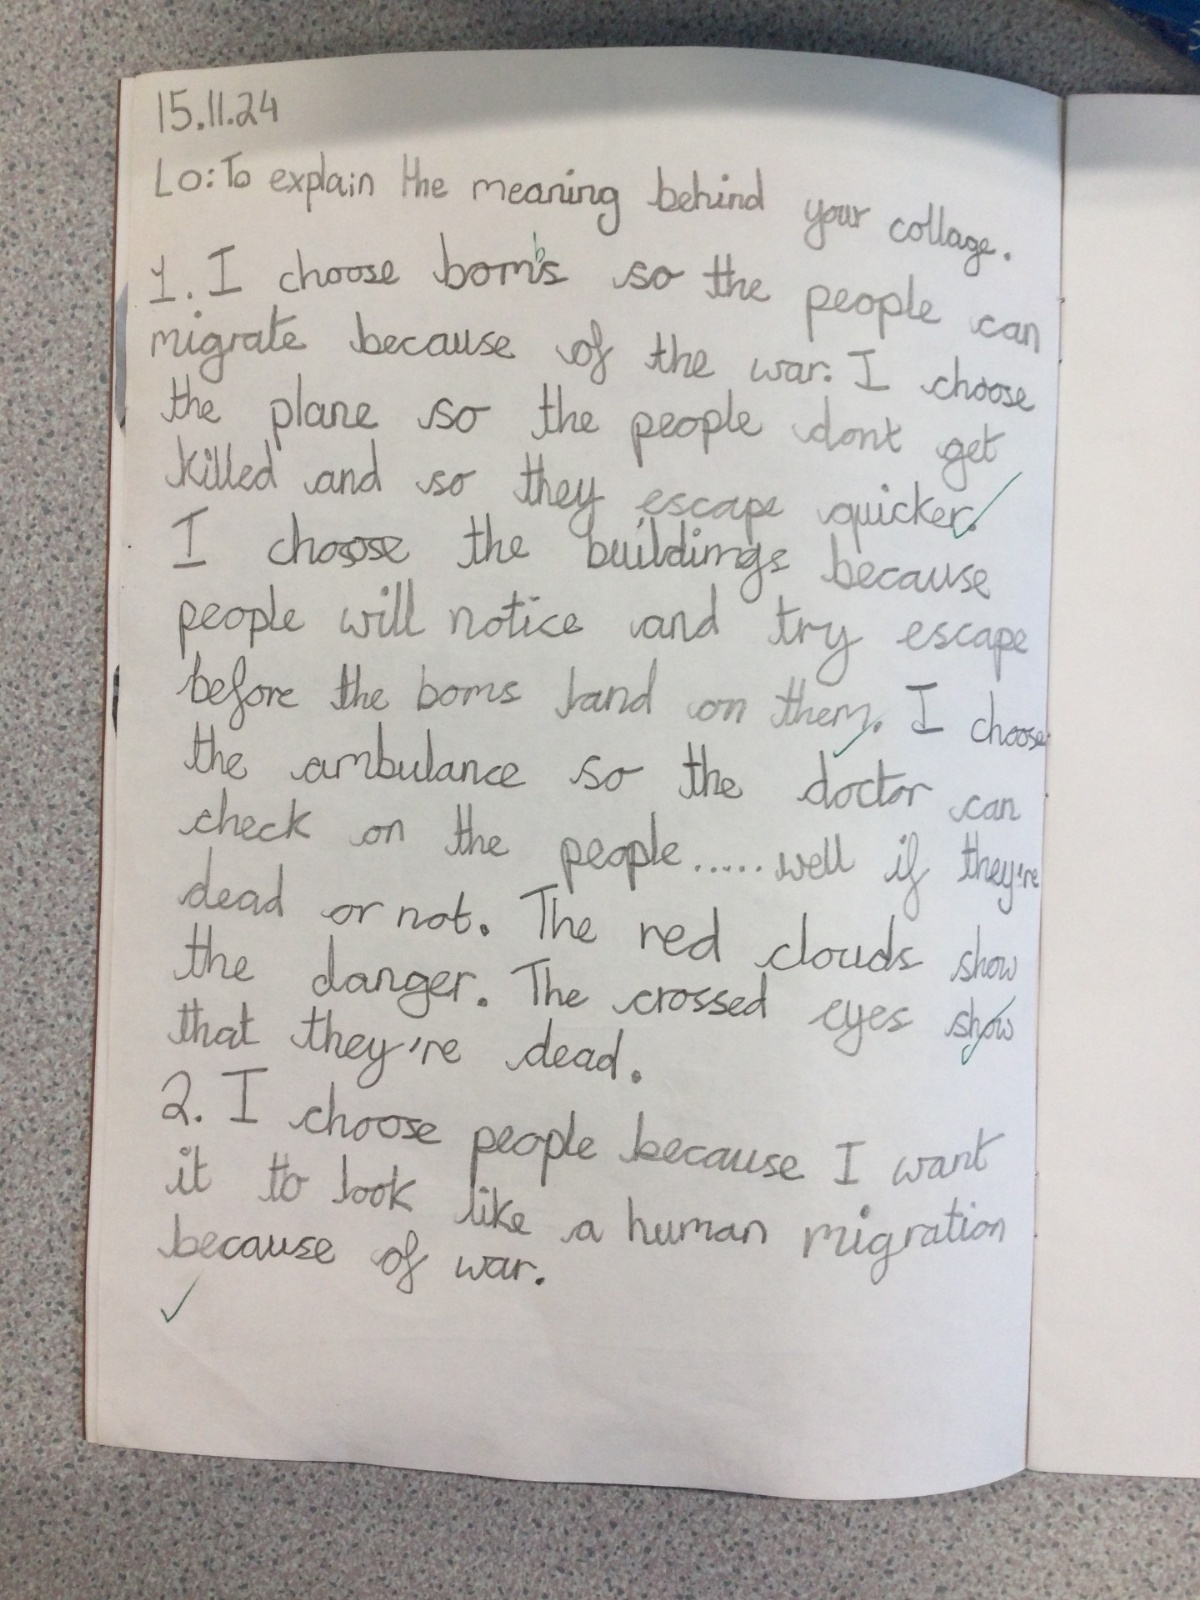 15.11.24
LO: To explain the meaning behind your collage.
1. I choose bombs so the people can
migrate because of the war. I choose
the plane so the people dont get
killed and so they escape quicker.
I choose the buildings because
people will notice and try escape
before the boms land on them. I choose
the ambulance so the doctor can
check on the people......well if they're
dead or not. The red clouds show
the danger. The crossed eyes show
that they're dead.
2. I choose people because I want
it to look like a human migration
because of war.